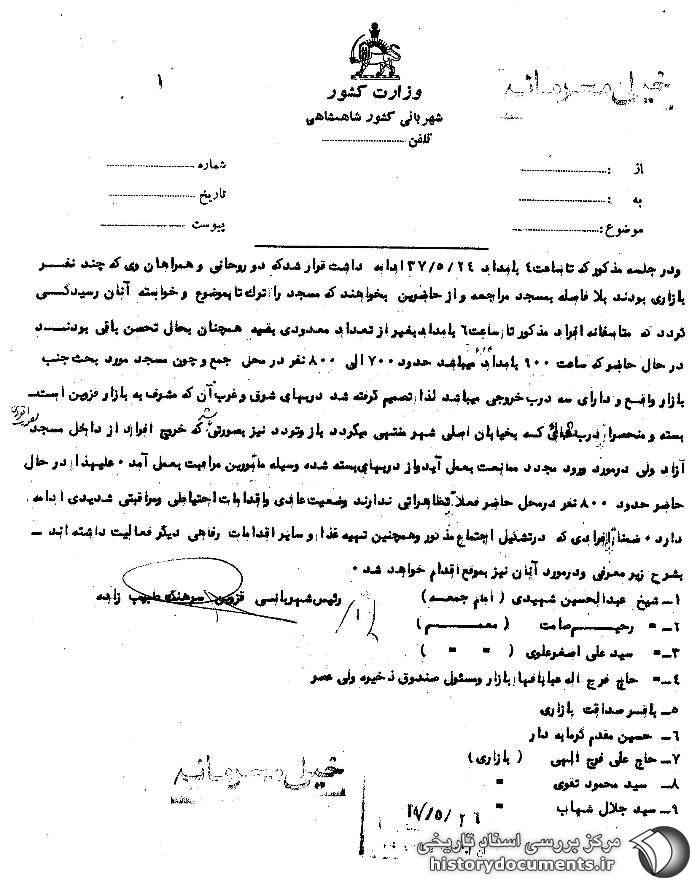 خیلی محرمانه
۱
وزارت کشور
شهربانی کشور شاهنشاهی
تلفن
از :
شماره
به :
تاریخ
موضوع:
پیوست
ودر جلسه مذکور که تا ساعت ٤ بامداد ۳۷/۵/۲۴ ادامه داشت قرار شد که دو روحانی و همراهان وی که چند نفر
بازاری بودند بلا فاصله بمسجد مراجعه و از حاضرین بخواهند که مسجد را ترك تا بموضوع و خواسته آنان رسیدگی
گردد که متاسفانه افراد مذکور تا ساعت ٦ بامداد بغیر از تعداد معدودی بقیه همچنان بحال تحصن باقی بودند
در حال حاضر که ساعت ۹۰۰ بامداد میباشد حدود ۷۰۰ الی ۸۰۰ نفر در محل جمع و چون مسجد مورد بحث جنب
بازار واقع و دارای سه درب خروجی میباشد لذا تصمیم گرفته شد دربهای شرق و غرب آن که مشرف به بازار قزوین است
بسته و منحصرا درب که بخیابان اصلی شهر منتهی میگردد باز و تردد نیز بصورتی که خروج افراد از داخل مسجد
آزاد ولی درمورد ورود مجدد ممانعت بعمل آید و از دربهای بسته شده وسیله مامورین مراقبت بعمل آمد ۰ علیهذا در حال
حاضر حدود ۸۰۰ نفر درمحل حاضر فعلاً تظاهراتی ندارند وضعیت عادی و اقدامات احتیاطی ومراقبتی شدیدی ادامه
دارد ۰ ضمناً افرادی که درتشکیل اجتماع مذکور وهمچنین تهیه غذا و سایر اقدامات رفاهی دیگر فعالیت داشته اند
بشرح زیر معرفی ودرمورد آنان نیز بموقع اقدام خواهد شد ۰
۱ــ شیخ عبدالحسین شهیدی ( امام جمعه )
رئیس شهربانی قزوین سرهنگ طبیب زاده
۲ــ = رحیم صامت ( معمم )
۳ــ = سید علی اصغر علوی ( = = )
٤ــ = حاج فرج اله عباباف بازار ومسئول صندوق ذخیره ولی عصر
۵ــ صداقت بازاری
٦ــ حسین مقدم گرمابه دار
۷ــ حاج علی فرج الهی ( بازاری )
۸ــ سید محمود تقوی =
۹ــ سید جلال شهاب =
خیلی محرمانه
۲۶/۵/
مرکز بررسی اسناد تاریخی
historydocuments.ir